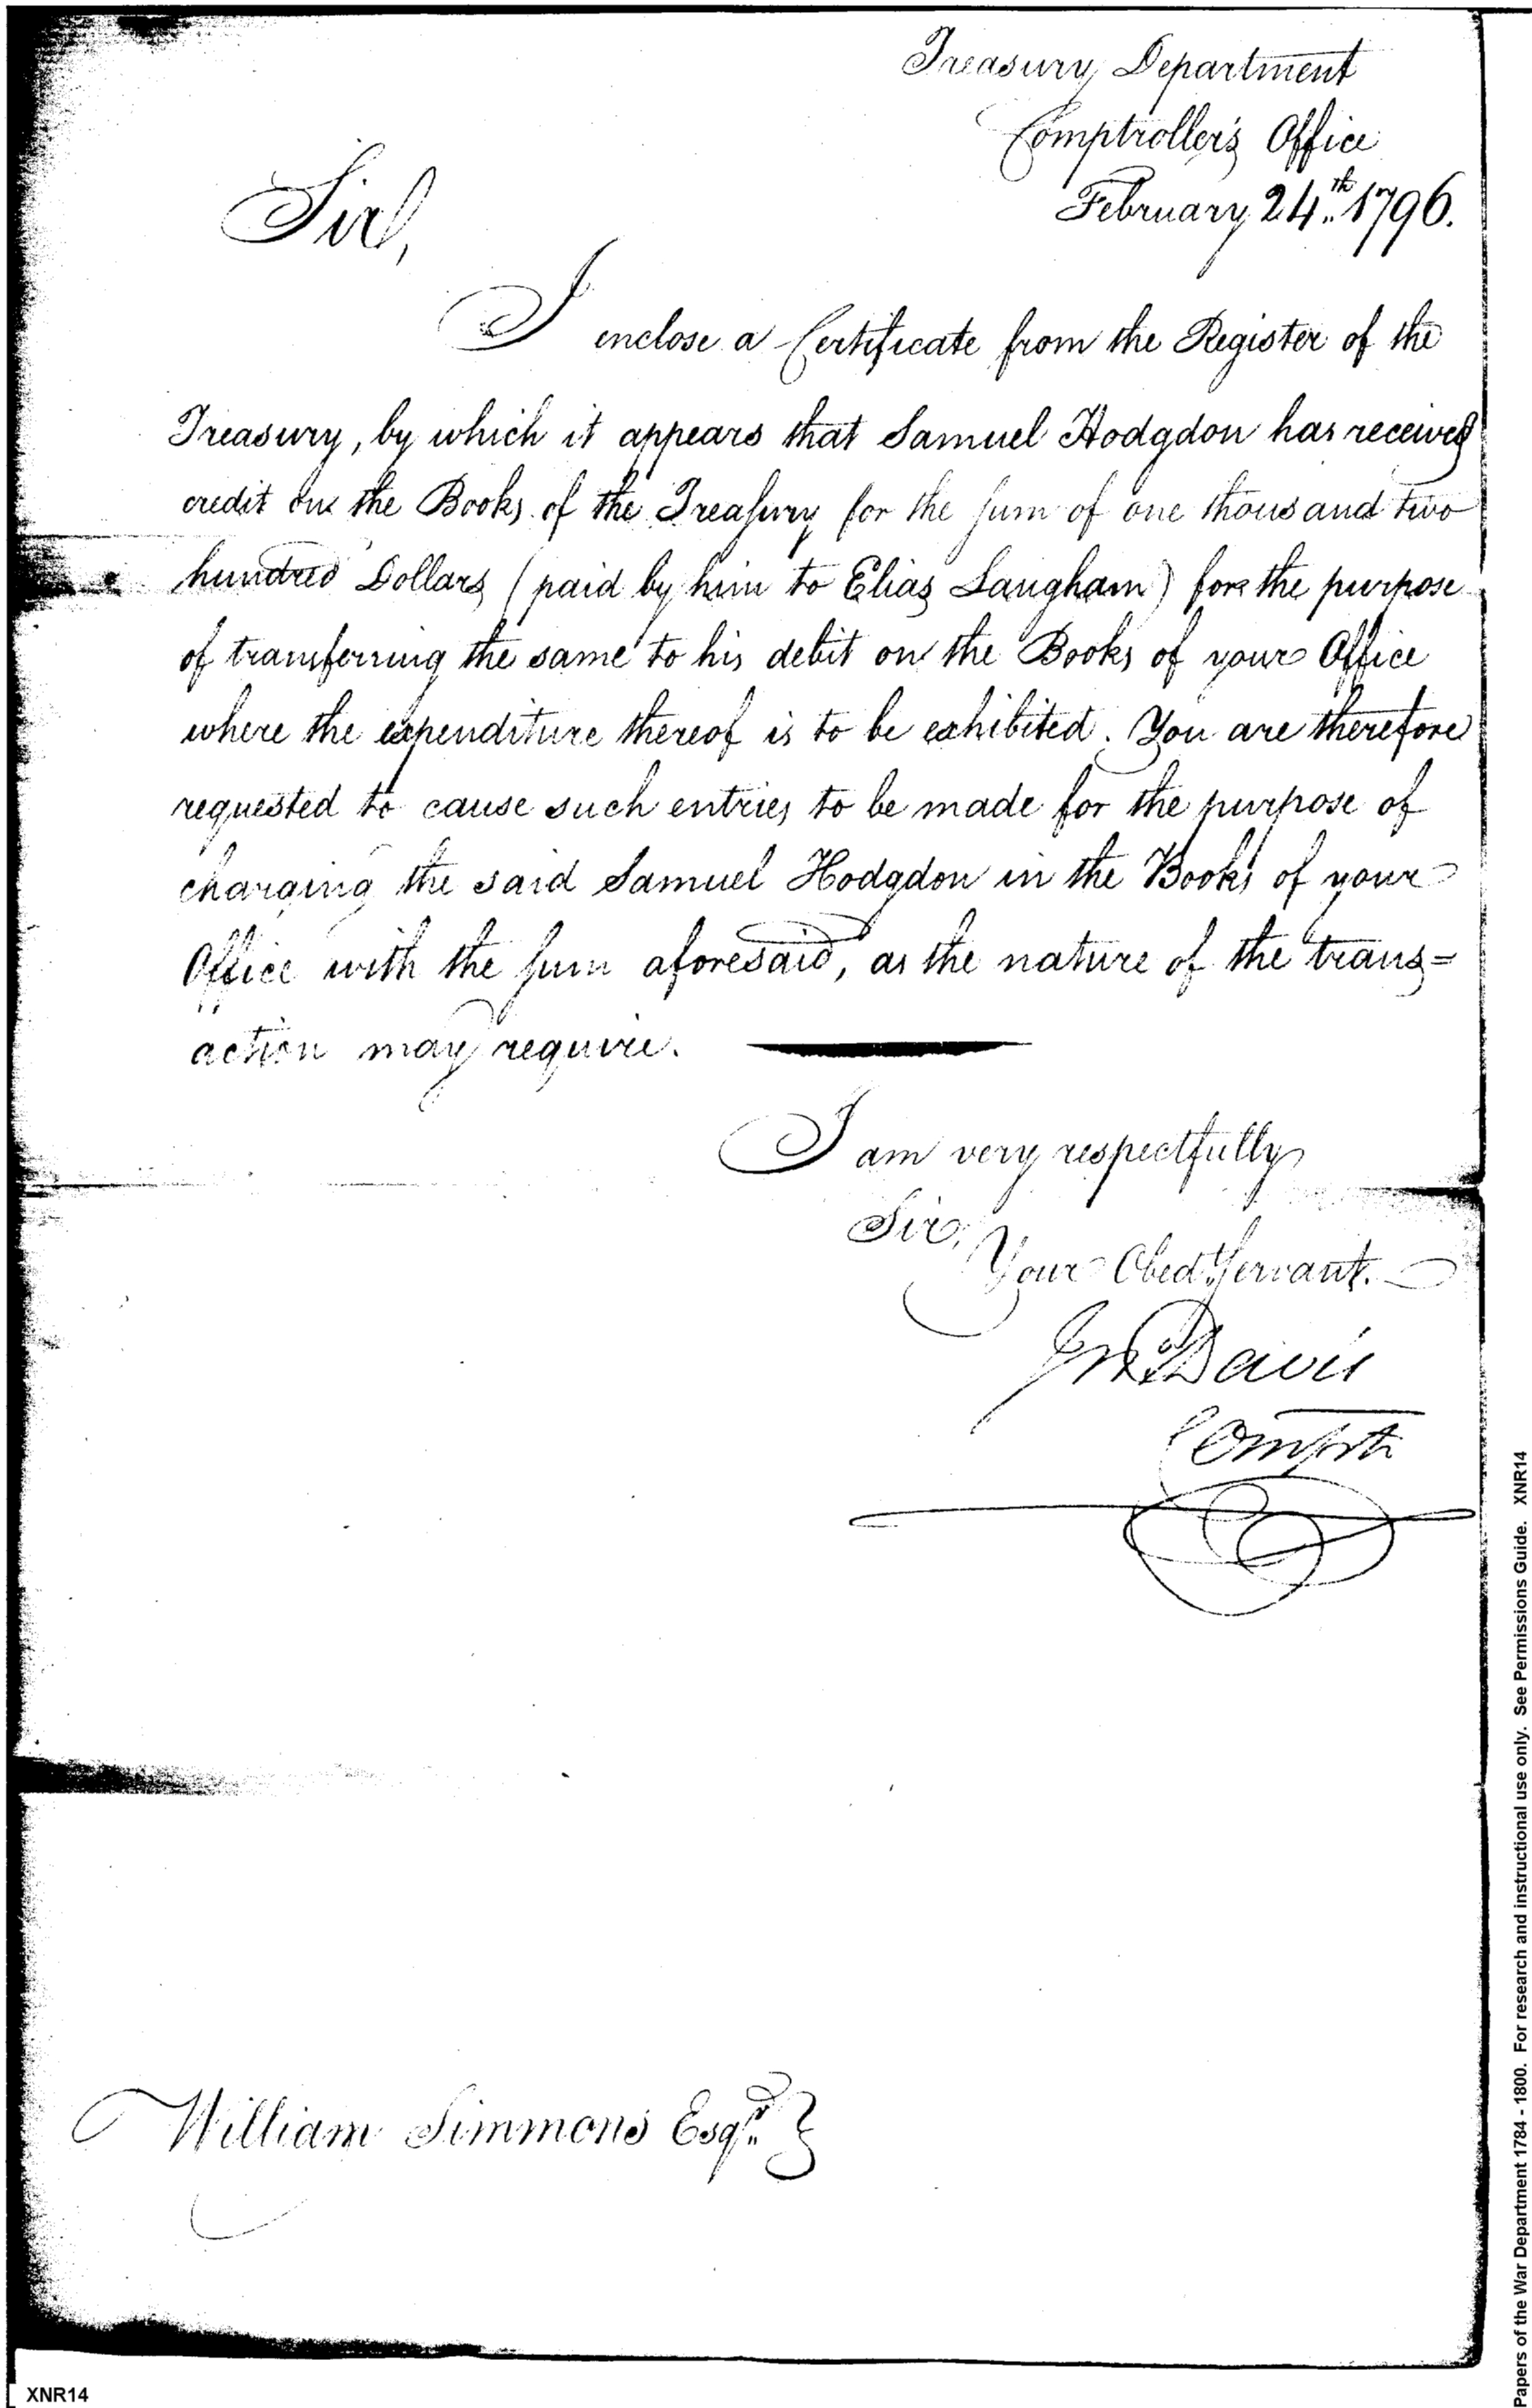 Treasury Department
Comptroller's Office
February 24th. 1796.
Sir,
I enclose a Certificate from the Register of the
Treasury, by which it appears that Samuel Hodgdon has received
credit on the Books of the Treasury for the sum of one thousand two
hundred Dollars (paid by him to Elias Langham) for the purpose
of transferring the same to his debit on the Books of your Office
where the expenditure thereof is to be exhibited. You are therefore
requested to cause such entries to be made for the purpose of
charging the said Samuel Hodgdon in the Books of your
Office with the sum aforesaid, as the nature of the trans=
action may require.
I am very respectfully
Sir,
Your Obedt Servant.
Jno. Davis
Comptr
William Simmons Esqr.
XNR14
Papers of the War Department 1784 - 1800. For research and instructional use only. See Permissions Guide. XNR14